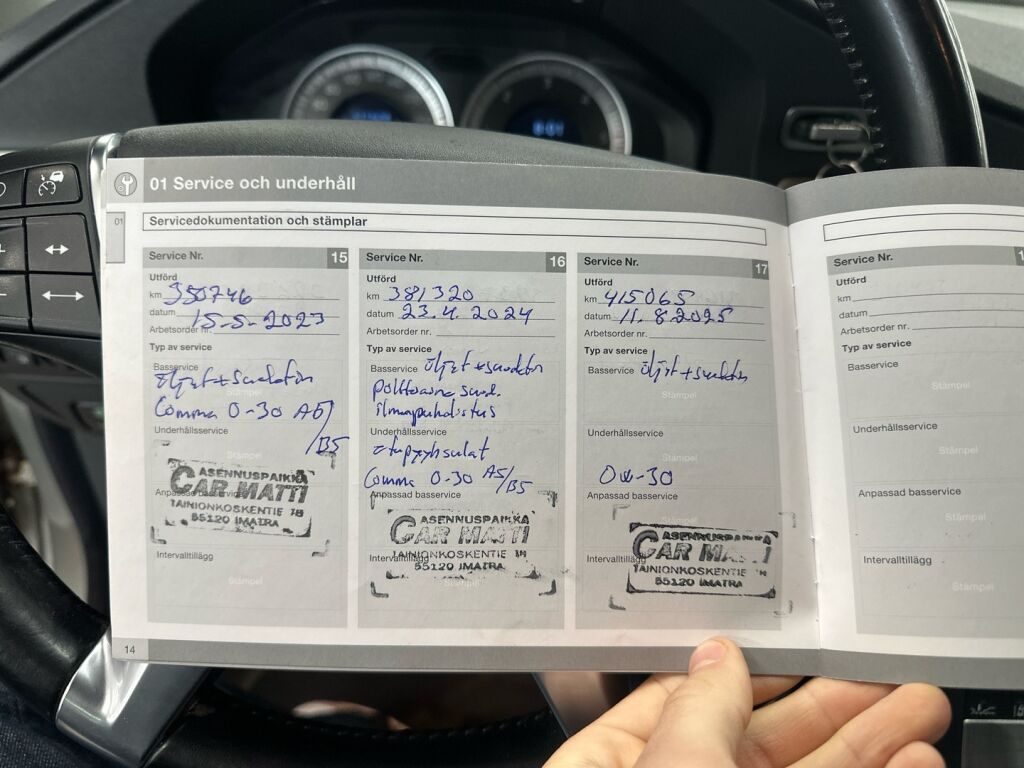 01 Service och underhåll
01
Servicedokumentation och stämplar
Service Nr. 15
Utförd
km 350746
datum 15-5-2023
Arbetsorder nr.
Typ av service
Basservice
öljyt + suodatin
Stämpel
Comma 0-30 A5/B5
Underhållsservice
Stämpel
ASENNUSPAIKKA
CAR MATTI
Anpassad basservice
TAINIONKOSKENTIE
55120 IMATRA
Intervalltillägg
Stämpel
Service Nr. 16
Utförd
km 381320
datum 23.4.2024
Arbetsorder nr.
Typ av service
Basservice öljyt + suodatin
polttoaine suod.
ilmapuhdistus
Underhållsservice
Comma 0-30 A5/B5
Anpassad basservice
ASENNUSPAIKKA
CAR MATTI
TAINIONKOSKENTIE
Intervalltillägg
55120 IMATRA
Stämpel
Service Nr. 17
Utförd
km 415065
datum 11.8.2025
Arbetsorder nr.
Typ av service
Basservice öljyt + suodatin
Stämpel
Underhållsservice
Stämpel
0w-30
Anpassad basservice
ASENNUSPAIKKA
CAR MATTI
Intervalltillägg
TAINIONKOSKENTIE
55120 IMATRA
14
Service Nr.
Utförd
km
datum
Arbetsorder nr.
Typ av service
Basservice
Stämpel
Underhållsservice
Stämpel
Anpassad basservice
Stämpel
Intervalltillägg
Stämpel